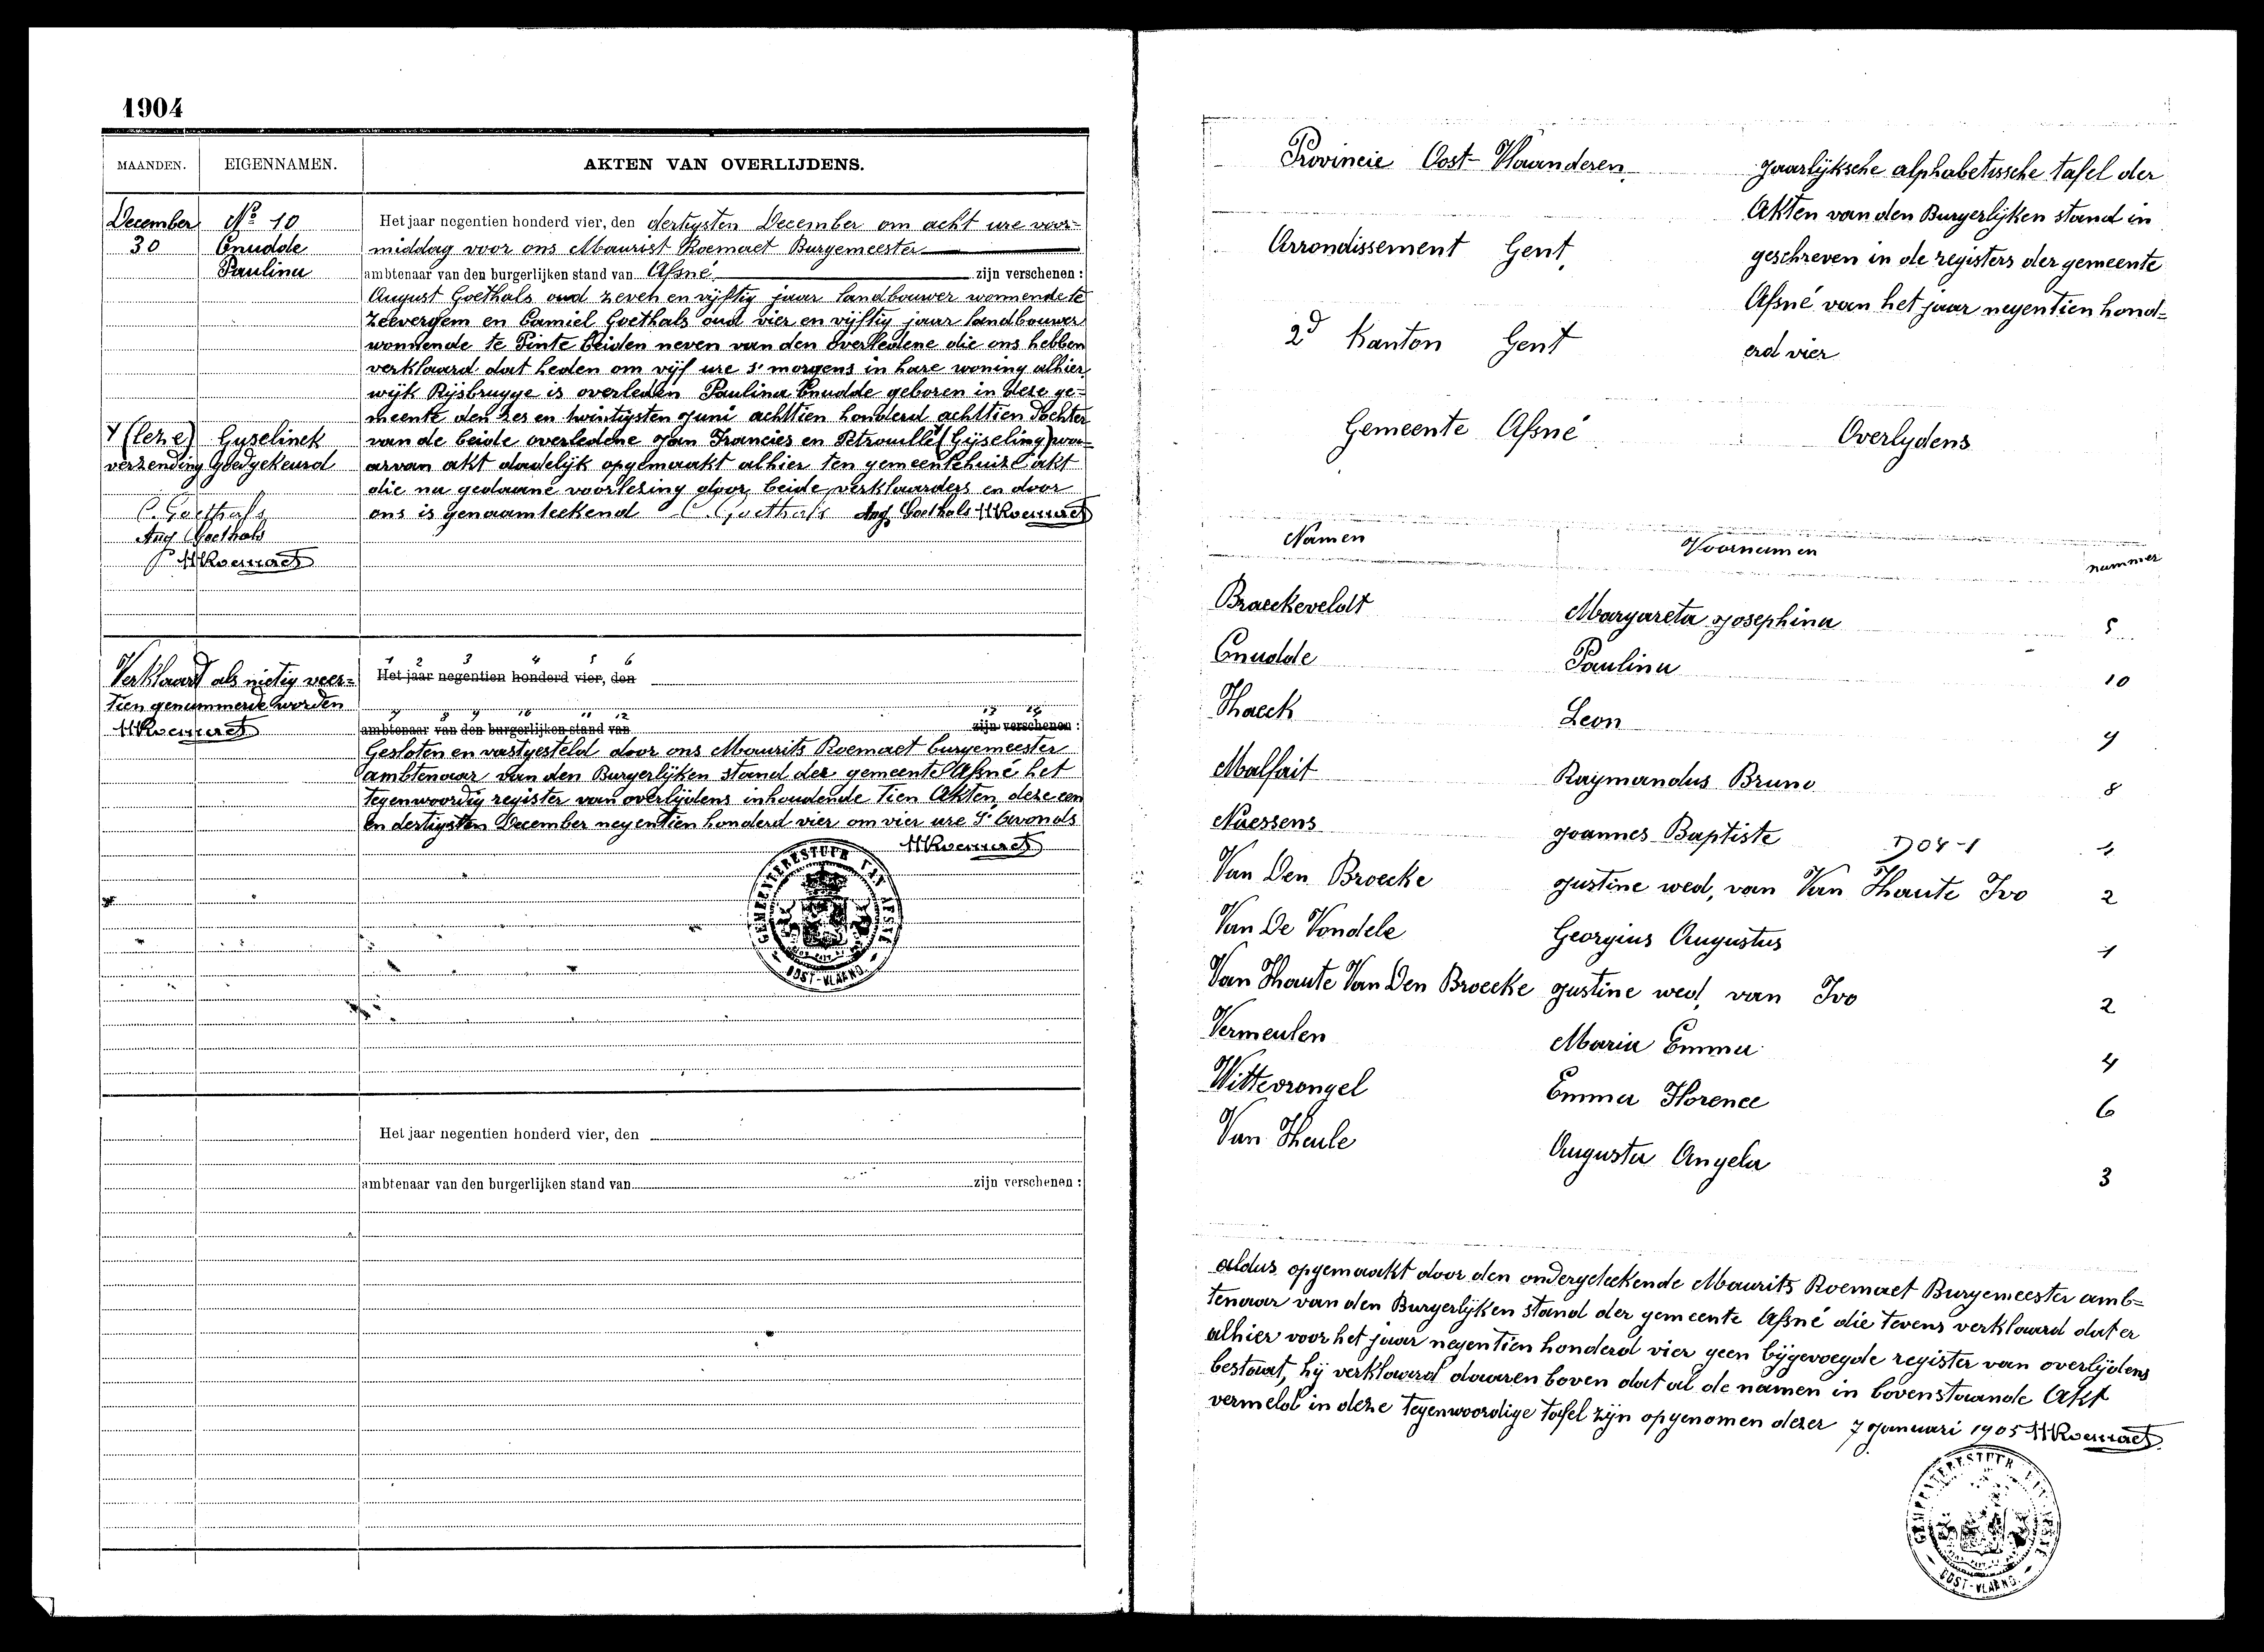 1904
MAANDEN. EIGENNAMEN. AKTEN VAN OVERLIJDENS.
December Nº 10 Het jaar negentien honderd vier, den dertigsten December om acht ure voor-
30 Cnudde middag voor ons Maurist Roemaet Burgemeester
Paulina ambtenaar van den burgerlijken stand van Afsné zijn verschenen :
August Goethals oud zeven en vijftig jaar landbouwer wonnende te
Zeevergem en Camiel Goethals oud vier en vijftig jaar landbouwer
wonnende te Pinte beiden neven van den overledene die ons hebben
verklaard dat heden om vijf ure s' morgens in hare woning alhier
wijk Rijsbrugge is overleden Paulina Cnudde geboren in deze ge-
meente den zes en twintigsten juni achttien honderd achttien dochter
(leze) Gyselinck van de beide overledene Jan Francies en Petronille (Gijseling) wa-
verzending goedgekeurd arvan akt dadelijk opgemaakt alhier ten gemeentehuize akt
die na gedaane voorlezing door beide verklaarders en door
C. Goethals ons is genaamteekend C. Goethals Aug Goethals MRoemaet
Aug Goethals
MRoemaet
1 2 3 4 5 6
Verklaard als nietig veer- Het jaar negentien honderd vier, den
tien genummerde worden
7 8 9 10 11 12 13 14
MRoemaet ambtenaar van den burgerlijken stand van zijn verschenen :
Gesloten en vastgesteld door ons Maurits Roemaet burgemeester
ambtenaar van den Burgerlijken stand der gemeente Afsné het
tegenwoordig register van overlijdens inhoudende tien Akten deze een
en dertigsten December negentien honderd vier om vier ure S' avonds
MRoemaet
GEMEENTEBESTUUR VAN AFSNÉ
OOST-VLAEND.
Het jaar negentien honderd vier, den
ambtenaar van den burgerlijken stand van zijn verschenen :
Provincie Oost-Vlaanderen
Arrondissement Gent
2d Kanton Gent
Gemeente Afsné
Jaarlijksche alphabetissche tafel der
Akten van den Burgerlijken stand in
geschreven in de registers der gemeente
Afsné van het jaar negentien hond-
erd vier
Overlydens
Namen Voornamen nummer
Braeckeveldt Margareta Josephina 5
Cnudde Paulina 10
Haeck Leon 9
Malfait Raymandus Bruno 8
Naessens Joannes Baptiste D04-1
Van Den Broecke Justine wed, van Van Haute Ivo 2
Van De Vondele Georgius Augustus 1
Van Haute Van Den Broecke Justine wed, van Ivo 2
Vermeulen Maria Emma 4
Wittevrongel Emma Florence 6
Van Heule Augusta Angela 3
aldus opgemaakt door den ondergeteekende Maurits Roemaet Burgemeester amb-
tenaar van den Burgerlijken stand der gemeente Afsné die tevens verklaard dat er
alhier voor het jaar negentien honderd vier geen bijgevoegde register van overlijdens
bestaat, hij verklaard daarenboven dat al de namen in bovenstaande Akt
vermeld in deze tegenwoordige tafel zijn opgenomen dezer 7 Januari 1905 MRoemaet
GEMEENTEBESTUUR
OOST-VLAEND.